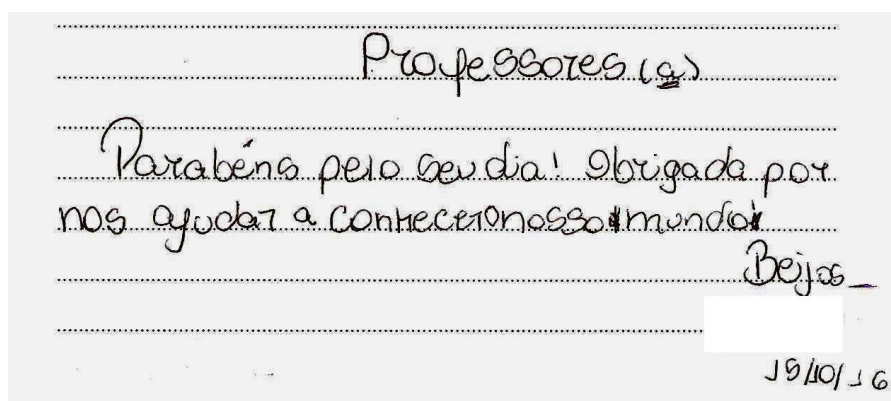 Professores (a)
Parabéns pelo seu dia! Obrigada por
nos ajudar a conhecer o nosso mundo!
Beijos
15/10/16